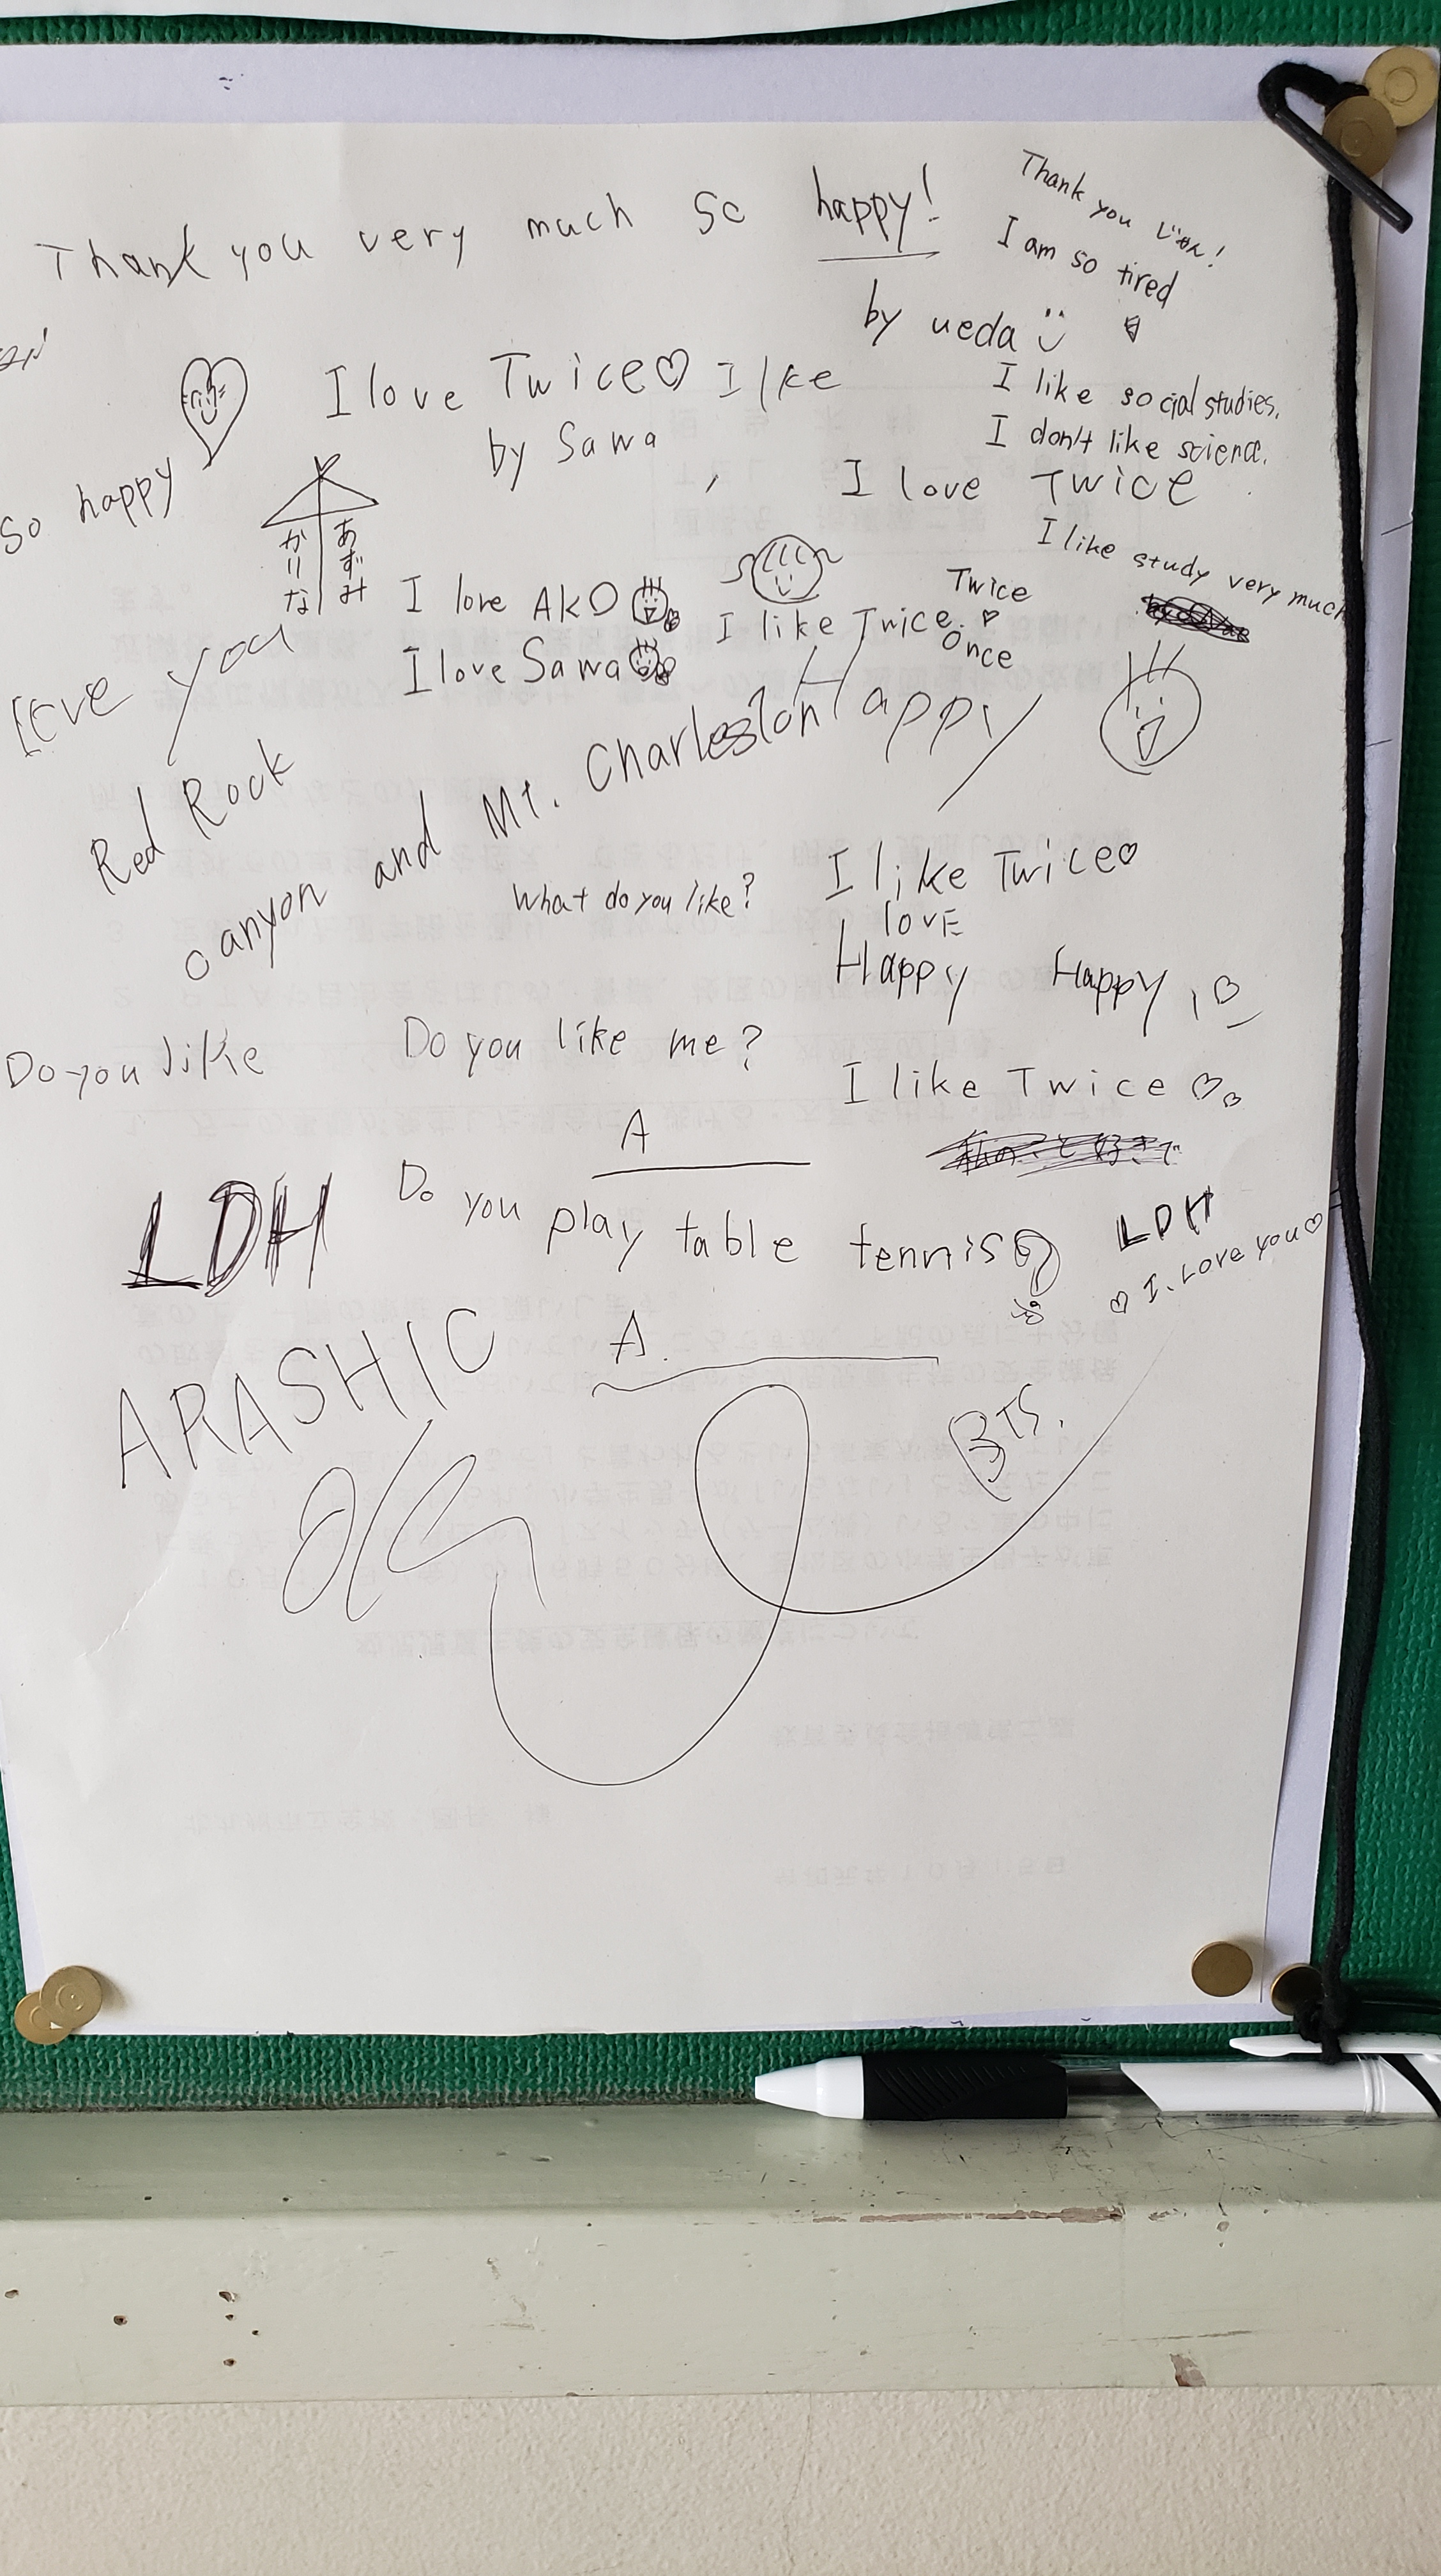 Thank you very much so happy!
Thank you じゅん!
I am so tired
by ueda
I love Twice♡ I lke
by Sawa
I like social studies.
I don't like science.
so happy
I love Twice
I like study very much
かりな
あずみ
I love AKO
I love Sawa
I like Twice.
Twice
♡
Once
you
Happy
Red Rock
canyon and Mt. Charleston
What do you like?
I like Twice♡
love
Happy Happy, ♡
Do you like
Do you like me?
I like Twice ♡♡
A
私のこと好きで
LDH
Do you play table tennis?
LDH
♡ I. Love you♡
A.
ARASHIC
BTS.